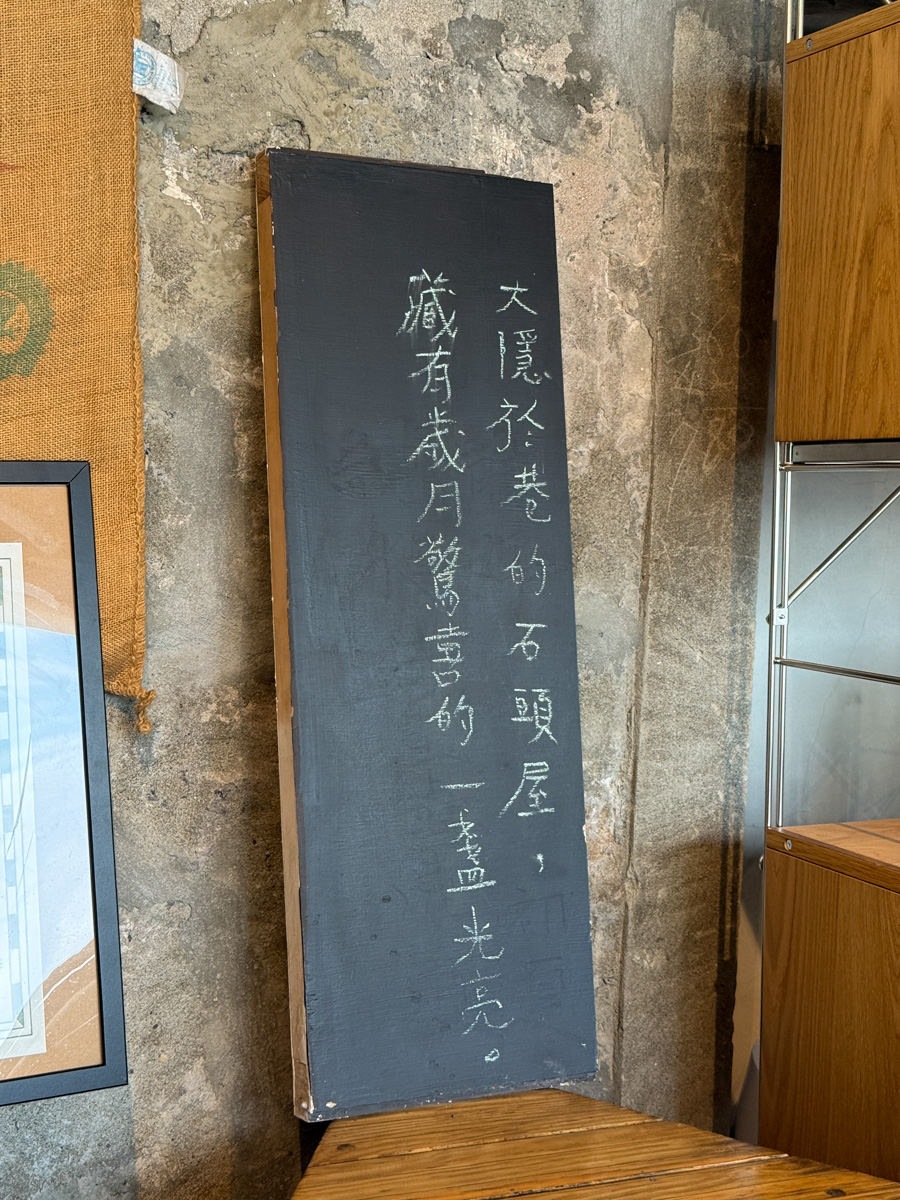 大隱於巷的石頭屋，
藏有歲月驚喜的一盞光亮。